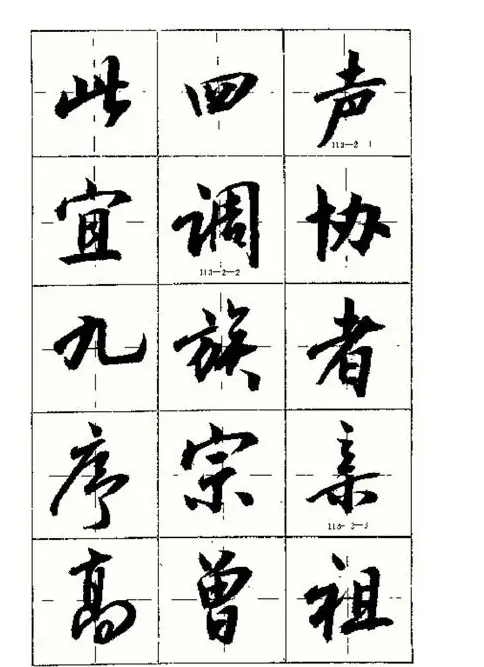 此四声
113—2 1
宜调协
113—2—2
九族者
序宗亲
113-2-3
高曾祖